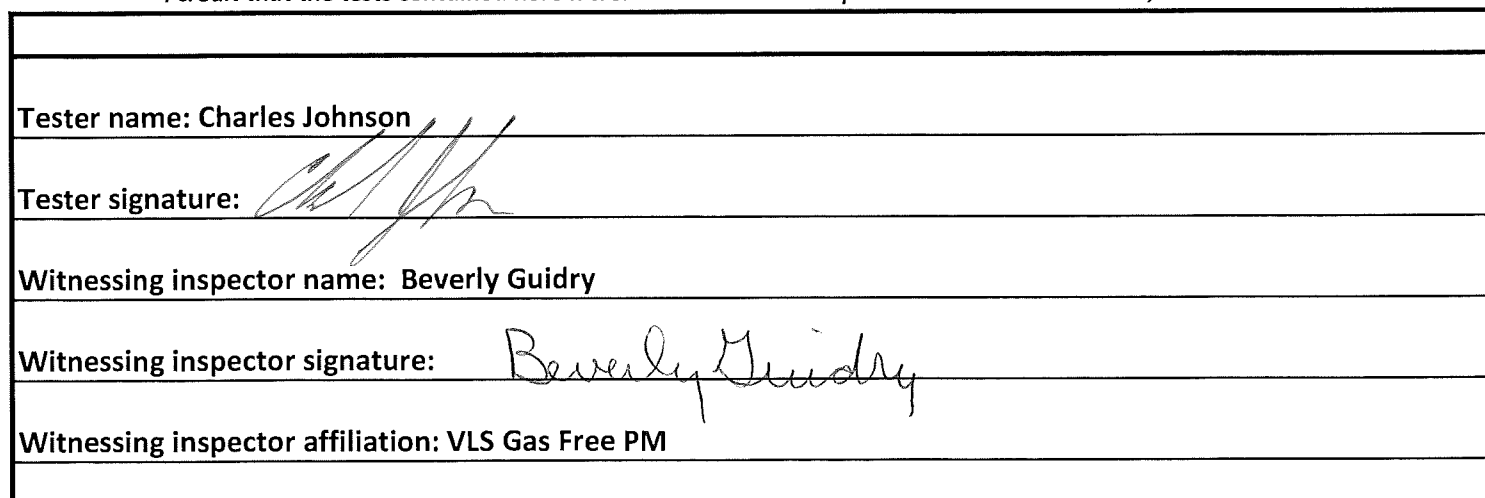 that the tests contained
Tester name: Charles Johnson
Tester signature:
Witnessing inspector name: Beverly Guidry
Witnessing inspector signature: Beverly Guidry
Witnessing inspector affiliation: VLS Gas Free PM